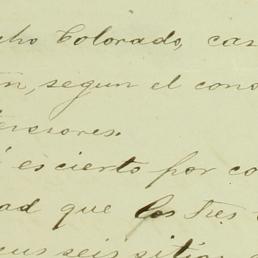 cho Colorado, cas
n, segun el cono
teriores.
es cierto por co
ad que los Tres
cus seis sitios